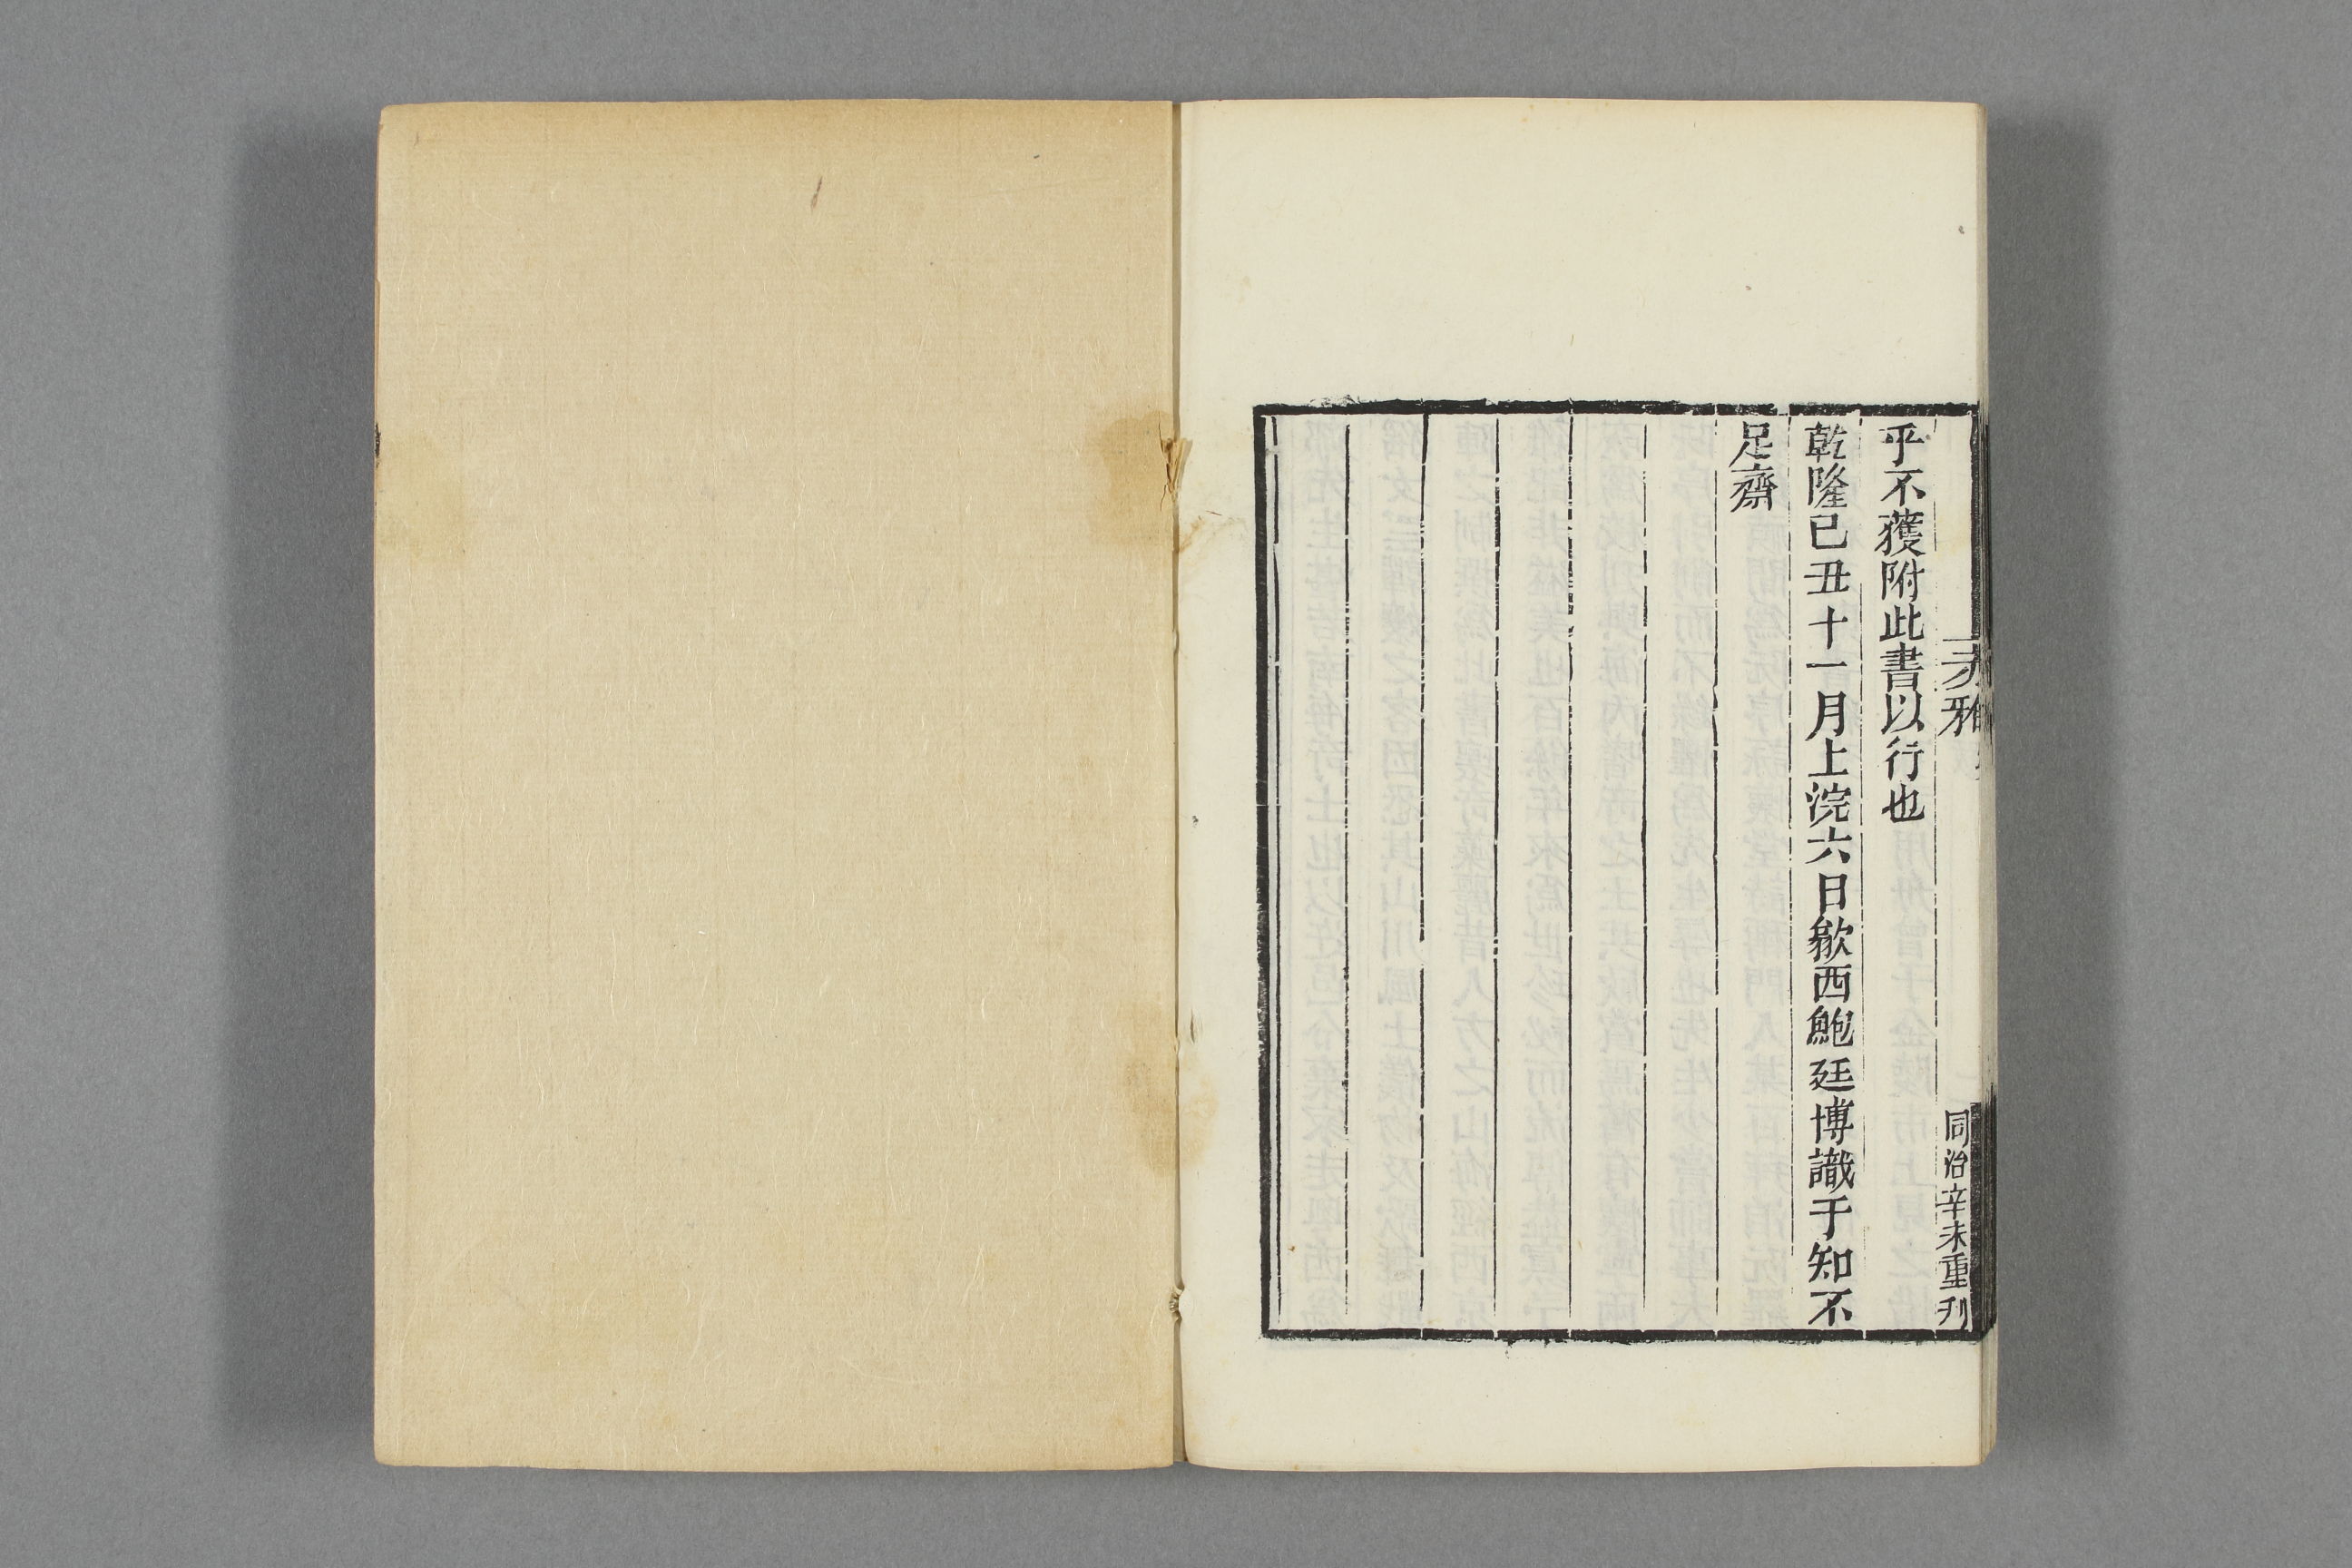 赤雅
同治辛未重刋
乎不獲附此書以行也
乾隆己丑十一月上浣六日歙西鮑廷博識于知不
足齋